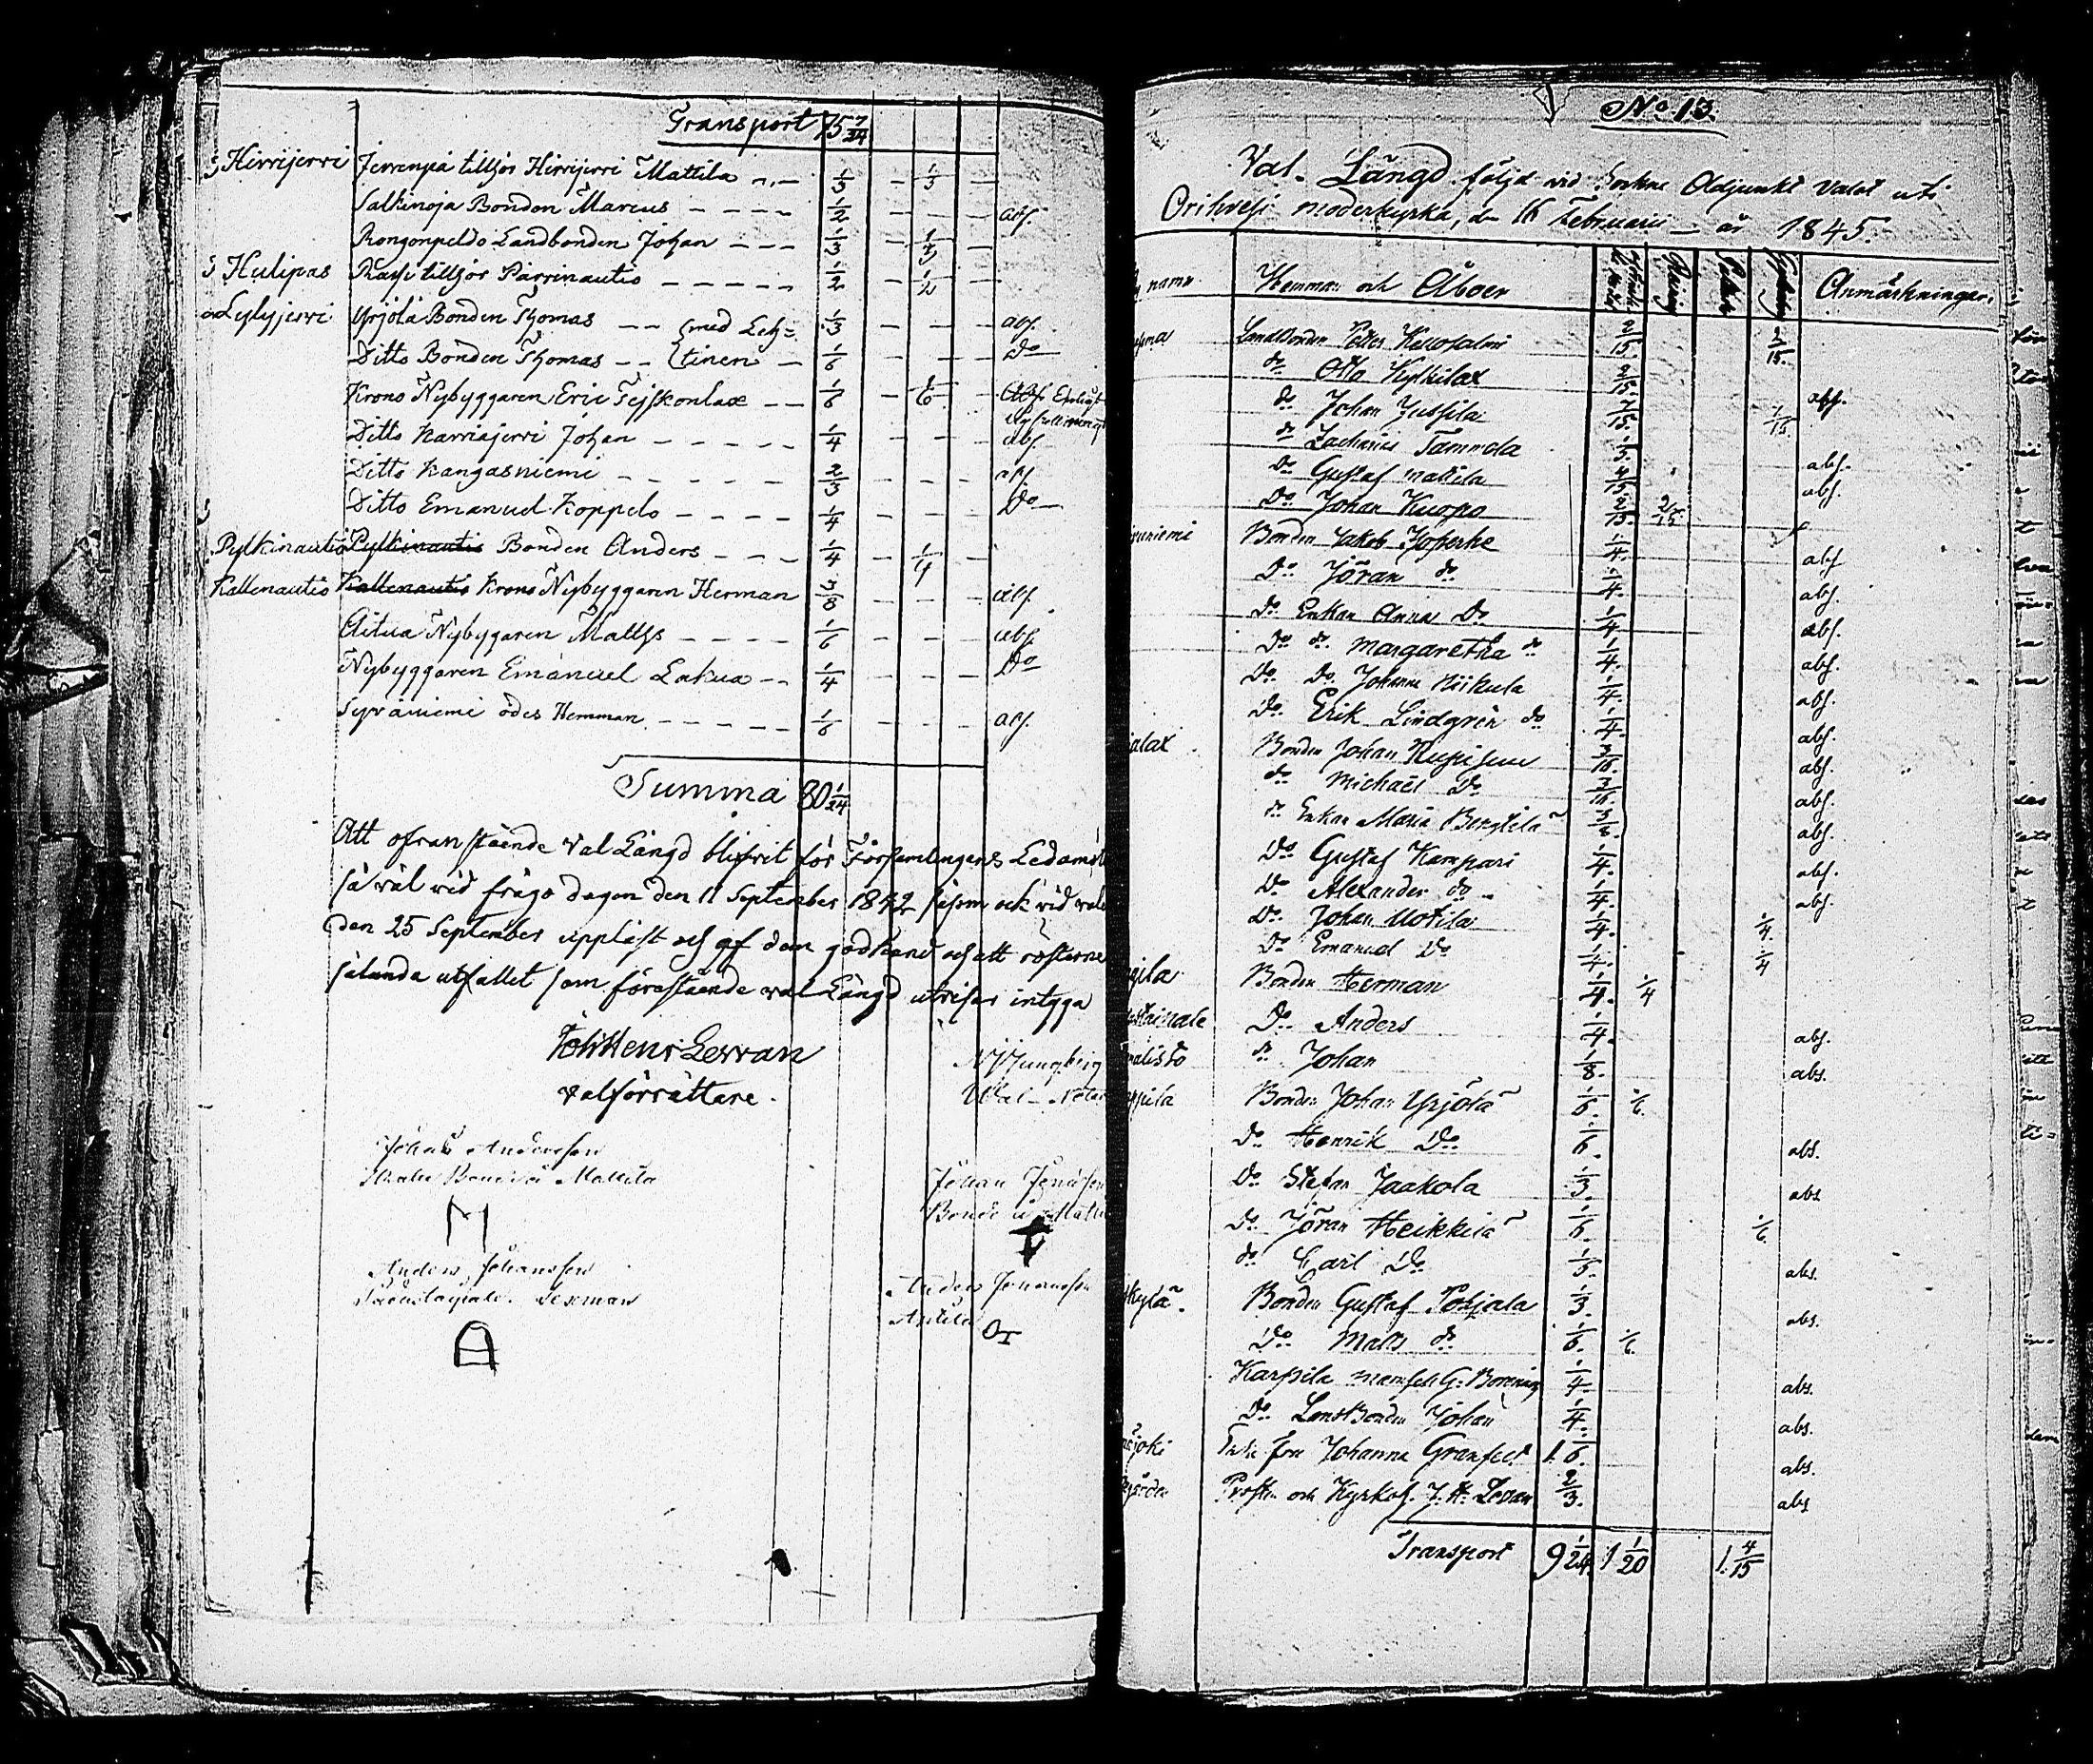 Transport 75 7/24
Hirrijerri Jerrenpä tillhör Hirrijerri Mattila 1/3 1/3
Salkinoja Bonden Marcus 1/2 abs.
Rongonpeldo Landbonden Johan 1/3 1/3
Hulipas Rasi tillhör Pärrinautio 1/2 1/2
Lylyjerri Yrjölä Bonden Thomas (med Leh= 1/3 abs.
Ditto Bonden Thomas (tinen 1/6 Do
Krono Nybyggaren Eric Tejskonlax 1/6 1/6
Ditto Karriajerri Johan 1/4 abs.
Ditto Kangasniemi 2/3 abs.
Ditto Emanuel Koppelo 1/4 Do
Pylkinautio Pylkinautio Bonden Anders 1/4 1/4
Kallenautio Kallenautio Krono Nybyggaren Herman 3/8 abs.
Aitua Nybygaren Matths 1/6 abs.
Nybyggaren Emanuel Lakua 1/4 Do
Syväniemi ödes Hemman 1/6 abs.
Summa 80 1/24
Att ofvanstående Val Längd blifvit för Församlingens Ledamöt
så väl vid frågo dagen den 11 September 1842 såsom ock vid vale
den 25 September uppläst och af dem godkänd och att rösterne
sålunda utfallet som förestående val Längd utvisar intyga
Joh Henr Levan
Valförrättare.
Ljungberg
Wal-Notar
Johan Andersson
Bonde i Mattila
M
Johan
Bonde
Anders Johansson
Sexman
A
Anders Johansson
Anttila
No 13.
Val-Längd följd vid Sockne Adjunkt Valet uti
Orihvesi moderkyrka, den 16 Februarii år 1845.
namn. Hemman och Åboer Anmärkningar.
Landbonden Petter 2/15. 2/15.
do Otto Kylkilax 2/15. abs.
do Johan Jussila 1/15.
do Zacharias Tammela abs.
do Gustaf Mattila abs.
Do Johan Kuopo 2/15. 2/15.
Bonden Jakob 1/4. abs.
Do Jöran do 1/4. abs.
do Enkan Anna Do 1/4. abs.
Do do. Margaretha do 1/4. abs.
Do Do. Johanna Niikula 1/4. abs.
Do Erik Lindgrén do 1/4. abs.
Bonden Johan 3/16. abs.
do Michael Do 3/16. abs.
do Enkan Maria abs.
Do Gustaf Kampari 1/4. abs.
Do Alexander do 1/4. abs.
Do Johan Uotila 1/4. 1/4.
Do Emanuel Do 1/4. 1/4
Bonden Herman 1/4. 1/4
Do Anders 1/4. abs.
do Johan 1/8. abs.
Bonden Johan Yrjölä 1/6. 1/6.
Do Henrik Do 1/6. abs.
Do Stefan Jaakola 1/3. abs
Do Jöran Heikkilä 1/6. 1/6.
do Carl Do abs.
kylä. Bonden Gustaf Pohjala 1/3. abs.
Do Matts do 1/6. 1/6.
Karpila mamsell G: 1/4. abs.
Do LansBonden Johan 1/4. abs.
joki fru Johanna Granfelt 1. 1/6. abs.
Prosten och Kyrkoh. J. H. Levan 2/3. abs
Transport 9 1/24. 1 1/20 1. 4/15